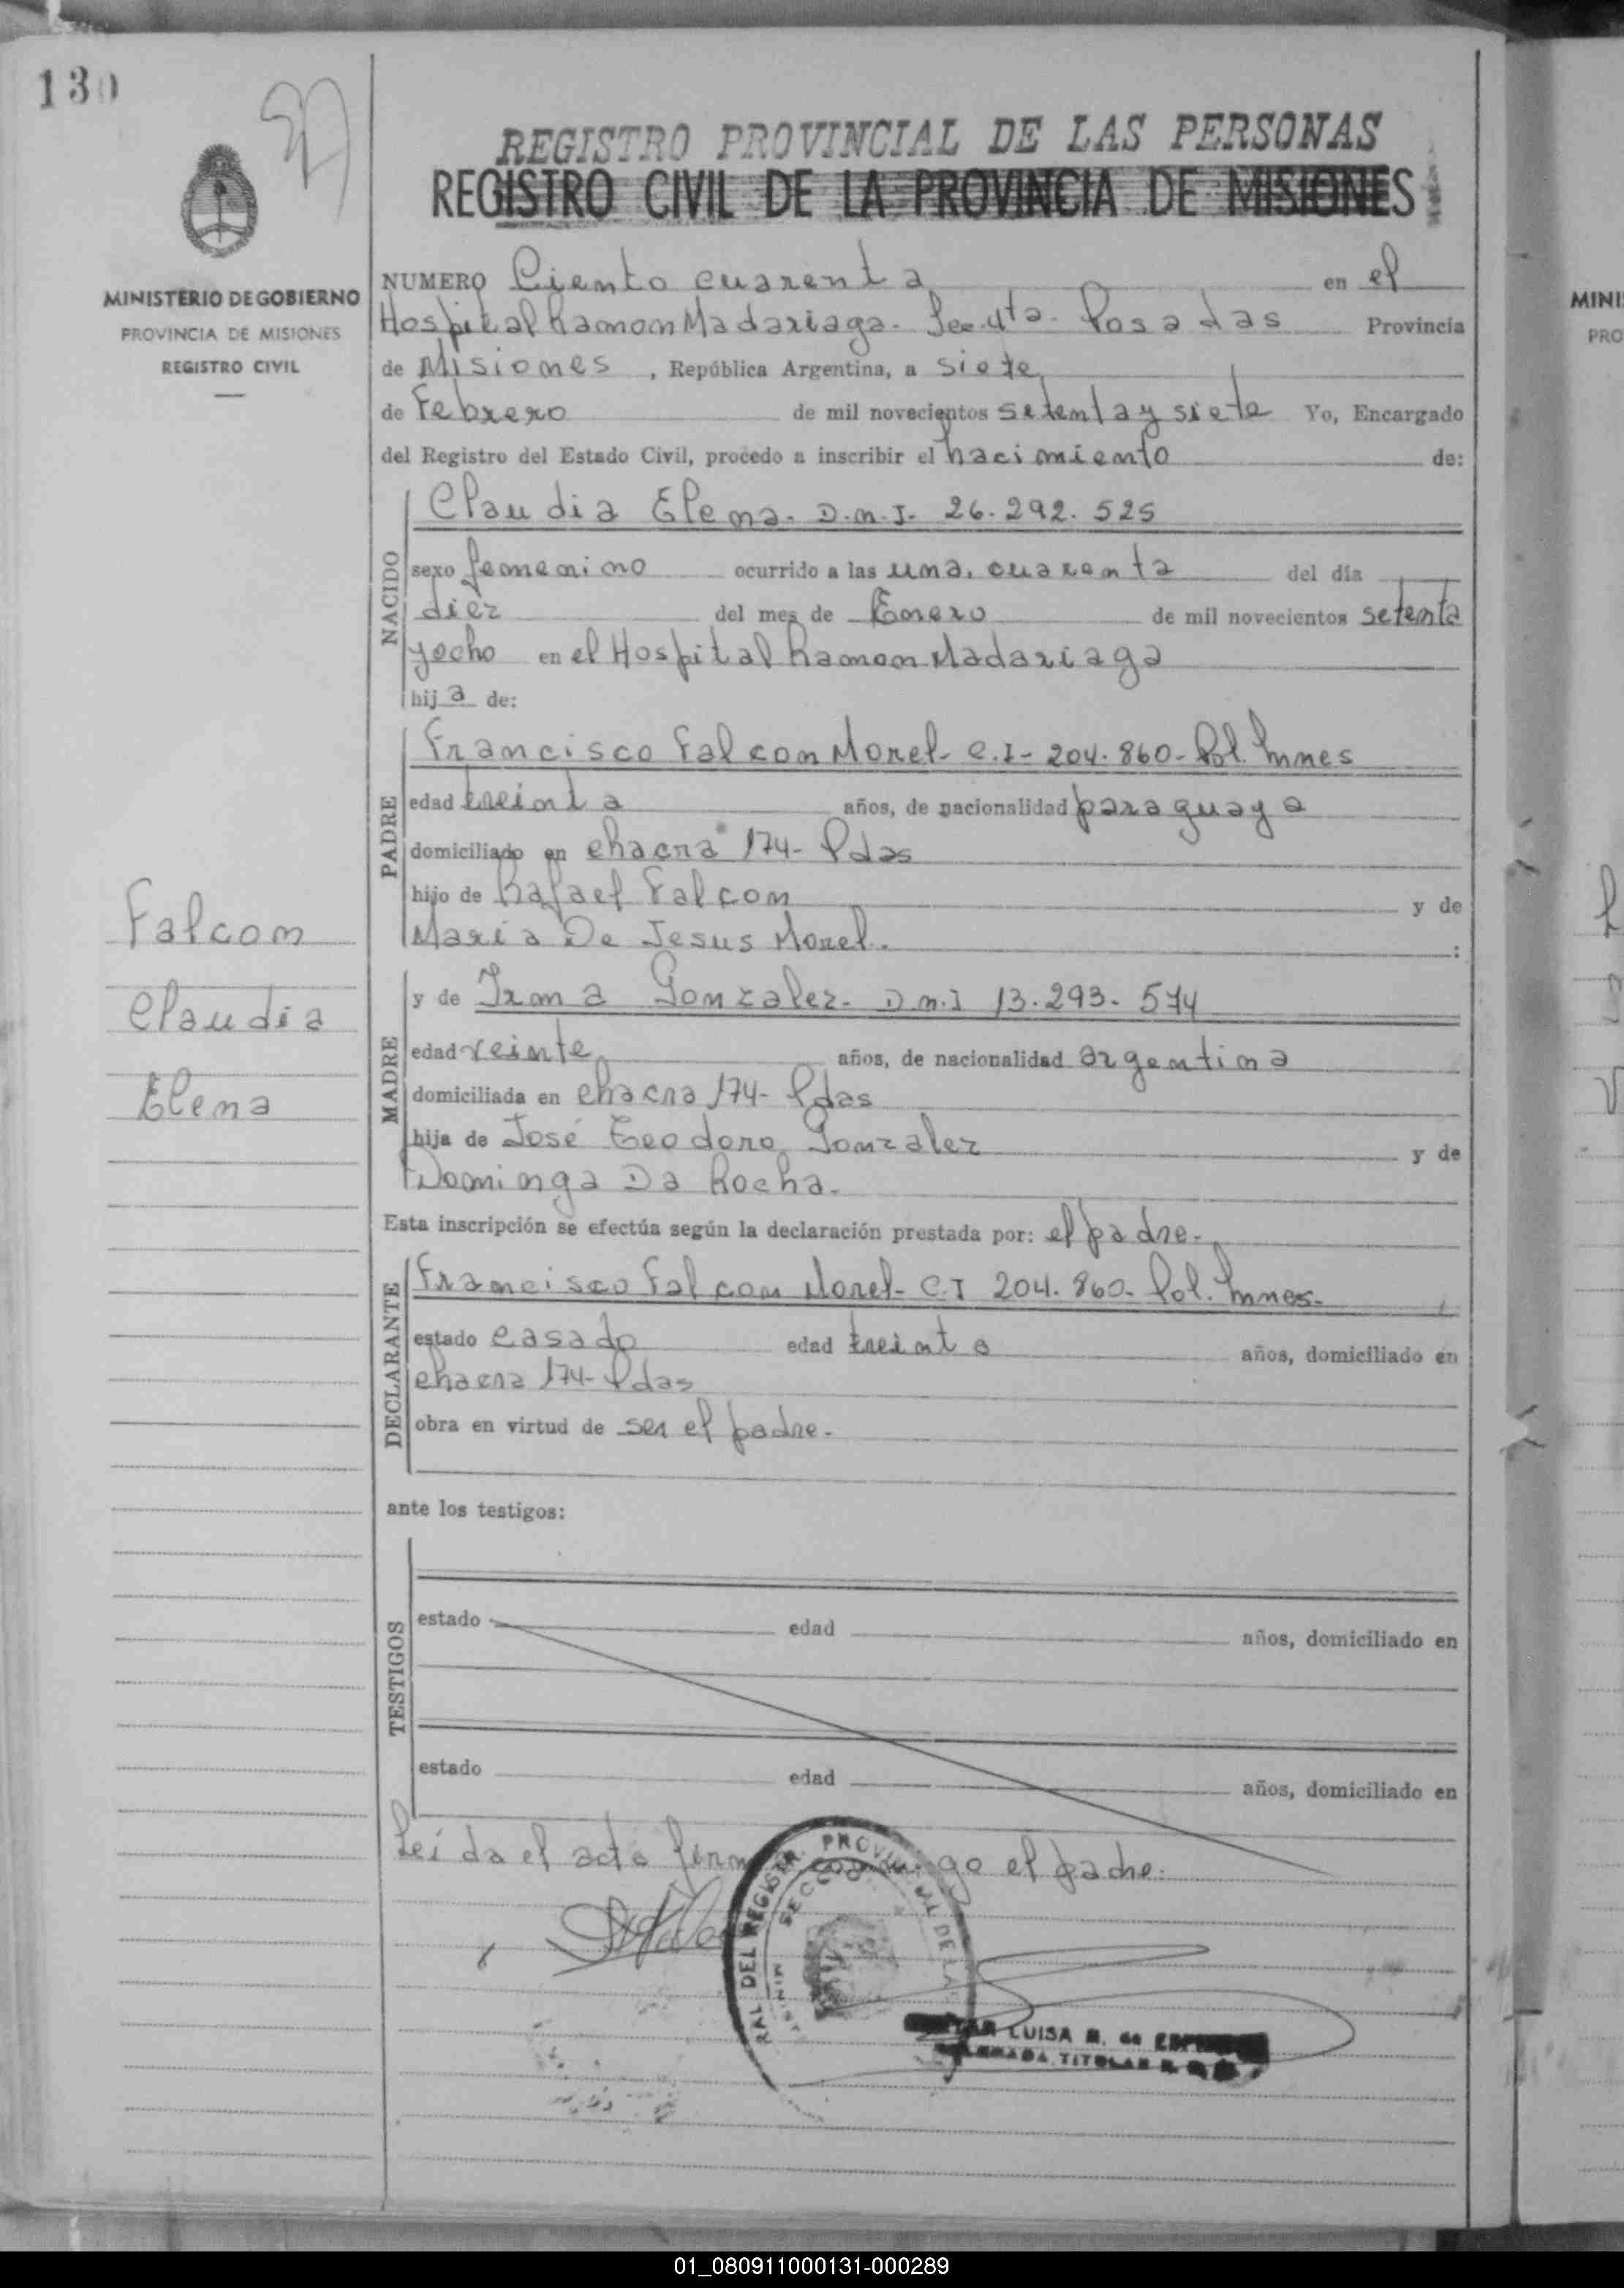 130
REGISTRO PROVINCIAL DE LAS PERSONAS
REGISTRO CIVIL DE LA PROVINCIA DE MISIONES
MINISTERIO DE GOBIERNO
PROVINCIA DE MISIONES
REGISTRO CIVIL
NUMERO Ciento cuarenta en el
Hospital Ramon Madariaga- Sec. 4ta- Posadas Provincia
de Misiones, República Argentina, a siete
de Febrero de mil novecientos setenta y siete Yo, Encargado
del Registro del Estado Civil, procedo a inscribir el nacimiento de:
NACIDO
Claudia Elena- D.n.I- 26.292.525
sexo femenino ocurrido a las una, cuarenta del día
diez del mes de Enero de mil novecientos setenta
y ocho en el Hospital Ramon Madariaga
hija de:
PADRE
Francisco Falcon Morel- C.I- 204.860- Pol. Mnes
edad treinta años, de nacionalidad paraguaya
domiciliado en chacra 174- Pdas
hijo de Rafael Falcon y de
Maria De Jesus Morel. :
Falcon
Claudia
Elena
MADRE
y de Irma Gonzalez- D.n.I 13.293.574
edad veinte años, de nacionalidad argentina
domiciliada en chacra 174- Pdas
hija de José Teodoro Gonzalez y de
Dominga Da Rocha.
Esta inscripción se efectúa según la declaración prestada por: el padre-
DECLARANTE
Francisco Falcon Morel- C.I 204.860- Pol. Mnes-
estado casado edad treinta años, domiciliado en
chacra 174- Pdas
obra en virtud de ser el padre.
ante los testigos:
TESTIGOS
estado edad años, domiciliado en
estado edad años, domiciliado en
Leida el acta el padre.
LUISA
TITULAR
MINI
PRO
01_080911000131-000289